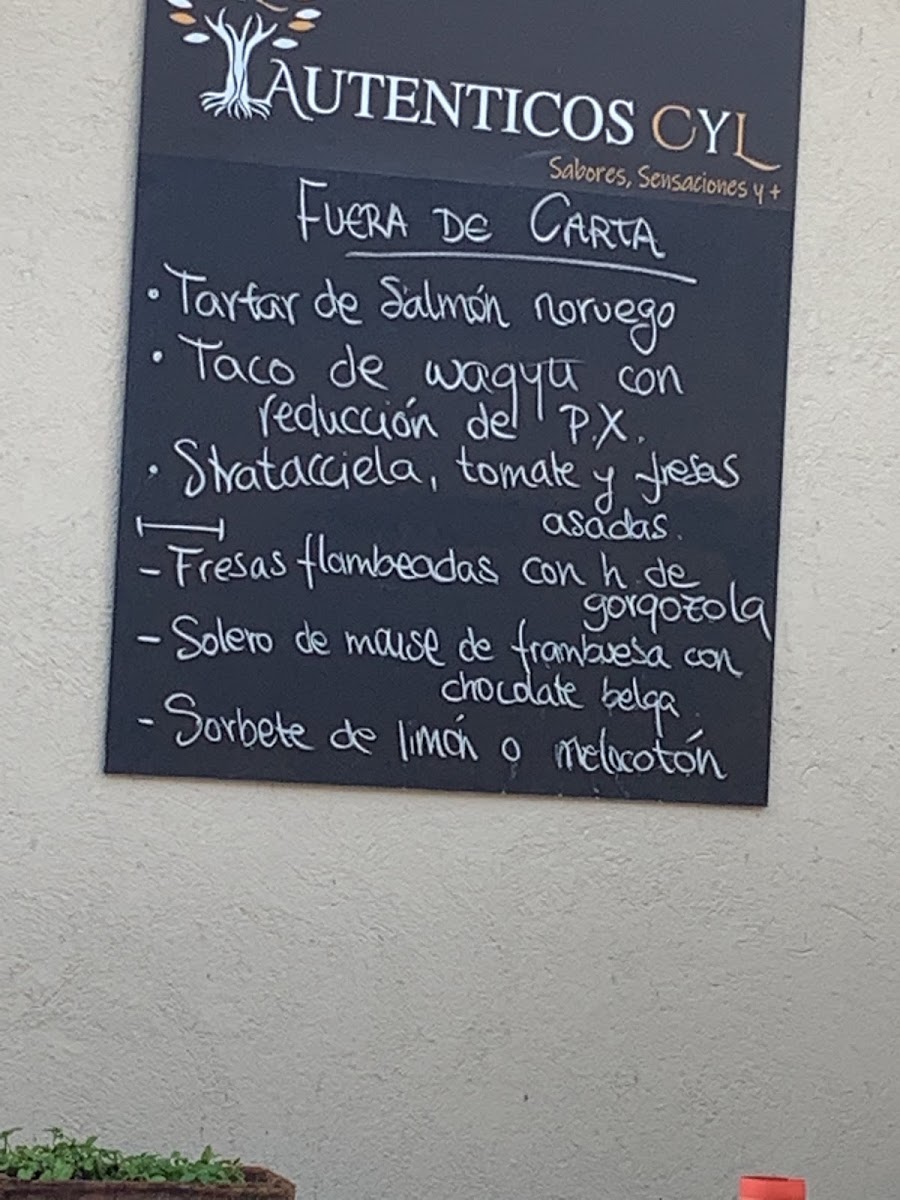 AUTENTICOS CYL
Sabores, Sensaciones y +
FUERA DE CARTA
• Tartar de Salmón noruego
• Taco de wagyu con
reducción de P.X.
• Stratacciela, tomate y fresas
asadas.
- Fresas flambeadas con h. de
gorgozola
- Solero de mouse de frambuesa con
chocolate belga.
- Sorbete de limón o melocotón